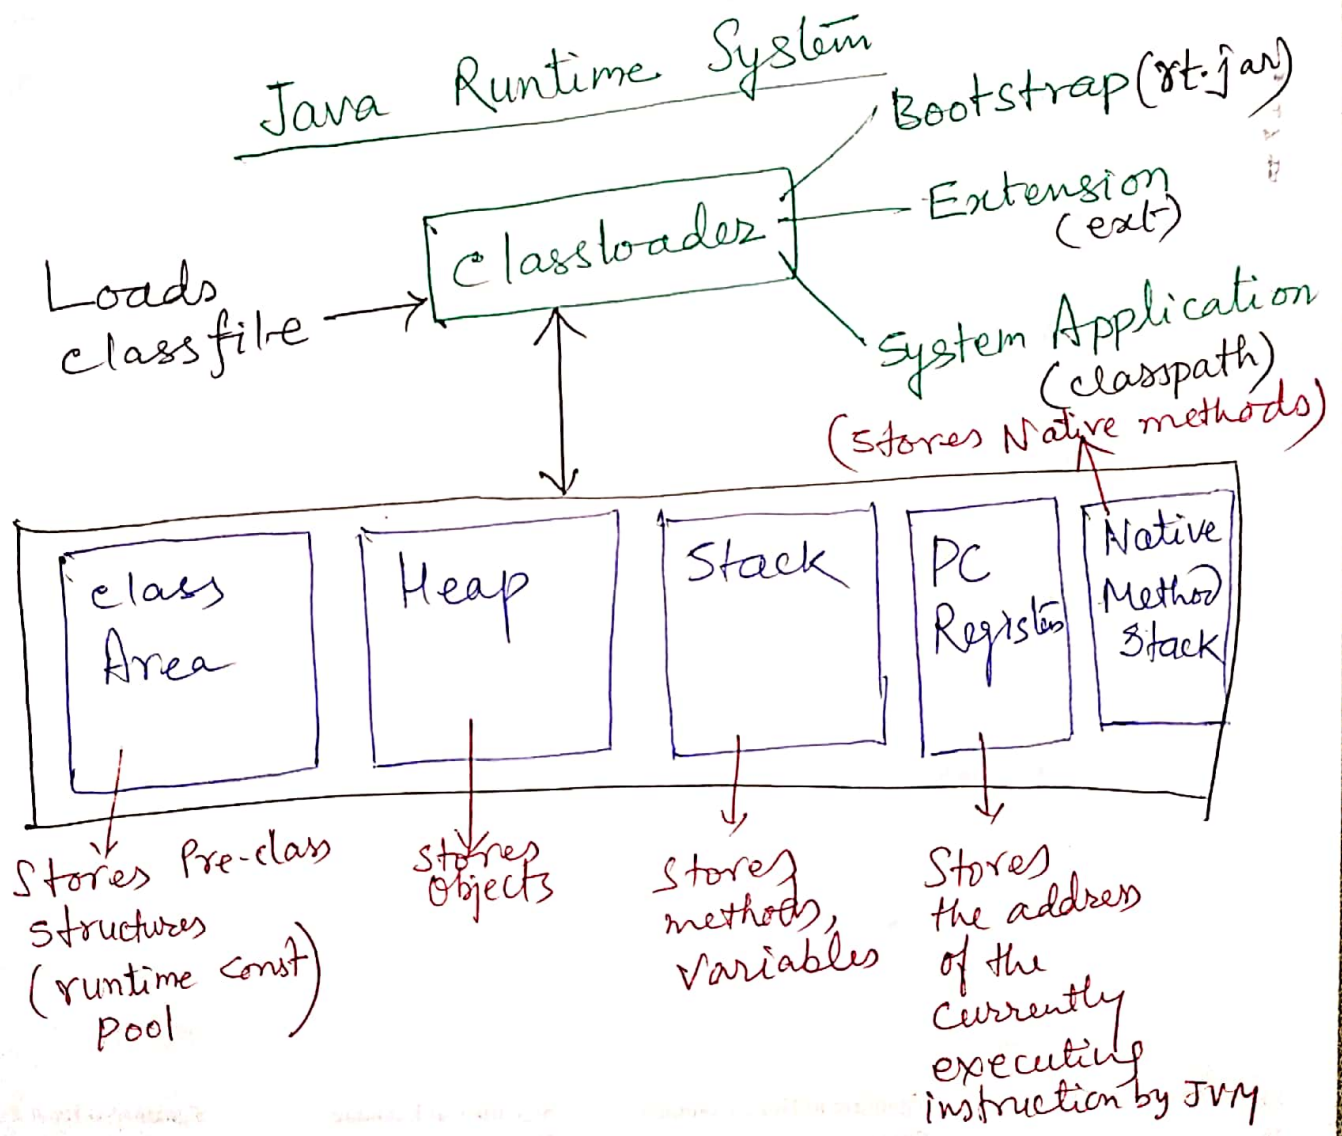 Java Runtime System
Bootstrap (rt.jar)
Extension
(ext)
Classloader
Loads
classfile
System Application
(classpath)
(Stores Native methods)
Class
Area
Heap
Stack
PC
Register
Native
Method
Stack
Stores Pre-class
structures
(runtime const
pool)
Stores
Objects
Stores
methods,
variables
Stores
the address
of the
currently
executing
instruction by JVM